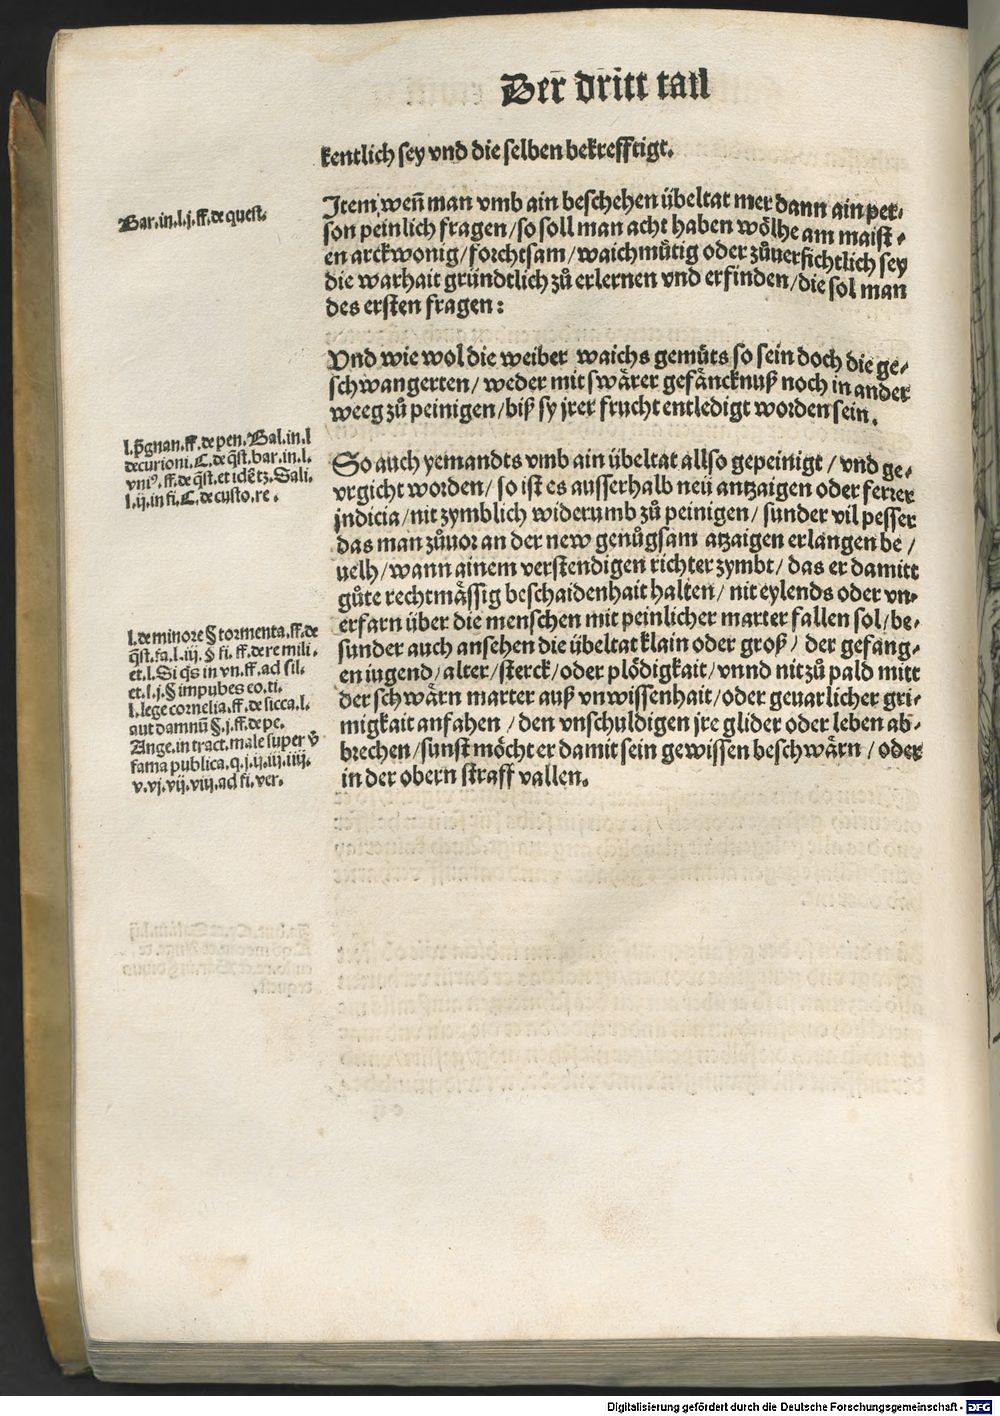 Der dritt tail
kentlich sey vnd die selben bekrefftigt.
Bar.in.l.j.ff.de quest.
Item wen̄ man vmb ain beschehen übeltat mer dann ain per⸗
son peinlich fragen/so soll man acht haben wölhe am maist⸗
en arckwonig/forchtsam/waichmütig oder zůuersichtlich sey
die warhait gründtlich zů erlernen vnd erfinden/die sol man
des ersten fragen:
Vnd wie wol die weiber waichs gemüts so sein doch die ge⸗
schwangerten/weder mit swärer gefäncknuß noch in ander
weeg zů peinigen/biß sy jrer frucht entledigt worden sein.
l.p̄gnan.ff.de pen.Bal.in.l
decurioni.C.de q̄st.bar.in.l.
vniꝰ.ff.de q̄st.et idētz.Sali.
l.ij.in fi.C.de custo.re.
So auch yemandts vmb ain übeltat allso gepeinigt/vnd ge⸗
vrgicht worden/so ist es ausserhalb neü antzaigen oder ferrer
jndicia/nit zymblich widerumb zů peinigen/sunder vil pesser
das man zůuor an der new genůgsam atzaigen erlangen be/
uelh/wann ainem verstendigen richter zymbt/das er damitt
gůte rechtmässig beschaidenhait halten/nit eylends oder vn⸗
erfarn über die menschen mit peinlicher marter fallen sol/be⸗
sunder auch ansehen die übeltat klain oder groß/der gefang⸗
en iugend/alter/sterck/oder plödigkait/vnnd nit zů pald mitt
der schwärn marter auß vnwissenhait/oder geuarlicher gri⸗
migkait anfahen/den vnschuldigen jre glider oder leben ab⸗
brechen/sunst möcht er damit sein gewissen beschwärn/oder
in der obern straff vallen.
l.de minore § tormenta.ff.de
q̄st.fa.l.iij.§ fi.ff.de re mili.
et.l.Si q̄s in vn.ff.ad sil.
et.l.j.§ impubes eo.ti.
l.lege cornelia.ff.de sicca.l.
aut damnū §.j.ff.de pe.
Ange.in tract.male super v̄
fama publica.q.j.ij.iij.iiij.
v.vj.vij.viij.ad fi.ver.
Digitalisierung gefördert durch die Deutsche Forschungsgemeinschaft - DFG